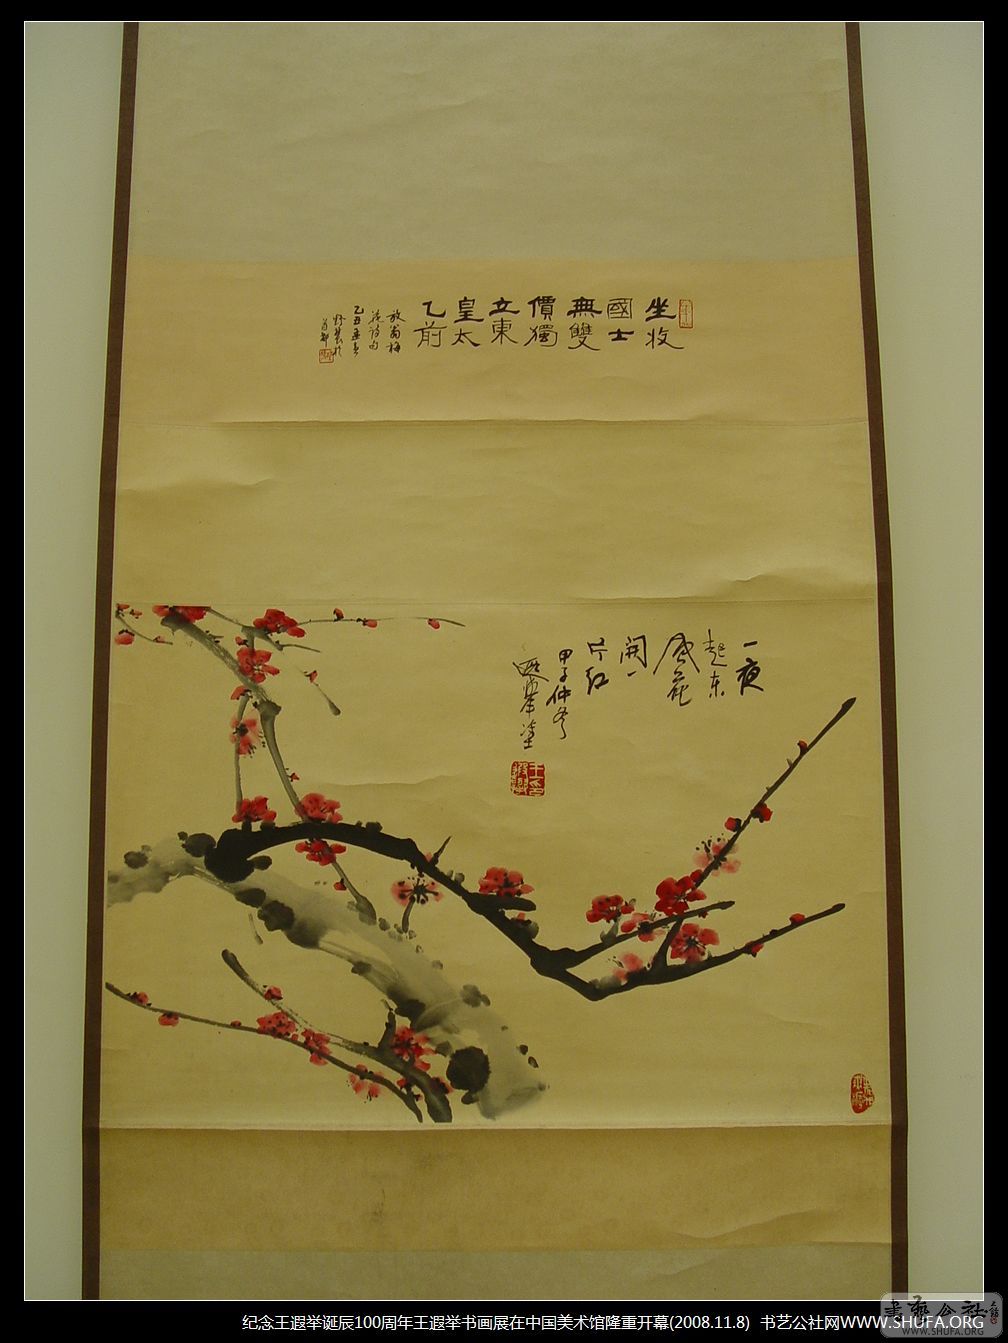 坐收
國士
無雙
價獨
立東
皇太
乙前
放翁梅
花詩句
乙丑孟春
於
首都
一夜
起東
風花
開一
片紅
甲子仲冬
遐举塗
纪念王遐举诞辰100周年王遐举书画展在中国美术馆隆重开幕(2008.11.8) 书艺公社网WWW.SHUFA.ORG
書藝公社
WWW.SHUFA.ORG